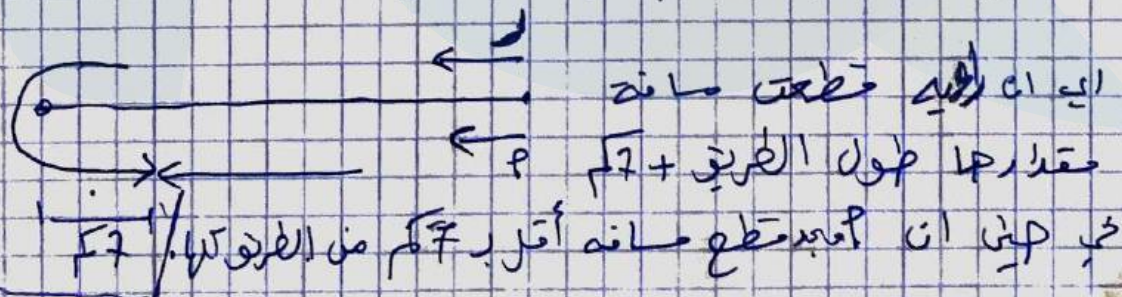 ر
اي ان راويه قطعت مسافة
مقدارها طول الطريق + 7كم
م
في حين ان امجد قطع مسافه أقل بـ 7كم من الطريق كلها.
7كم